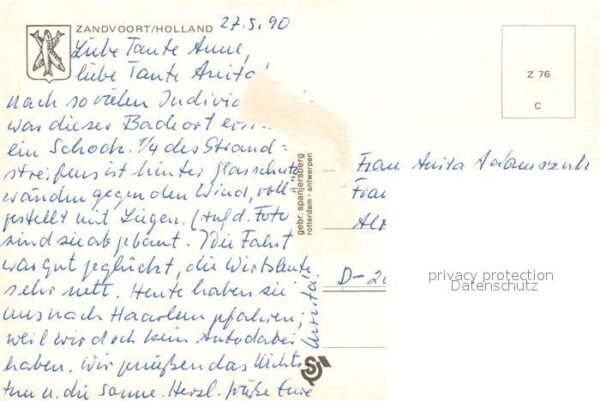 ZANDVOORT/HOLLAND 27.5.90
Liebe Tante Anne,
liebe Tante Anita!
nach so vielen Individ
was dieser Badeort
ein Schock. 1/4 des Strand=
streifens ist hinter Glasschutz
wänden gegen den Wind, voll=
gestellt mit Liegen. (Auf d. Foto
sind sie abgebaut. Die Fahrt
war gut geglückt, die Wirtsleute
sehr nett. Heute haben sie
uns nach Haarlem gefahren,
weil wir doch kein Auto dabei
haben. Wir genießen das Nichts
tun u. die Sonne. Herzl. Grüße Eure
gebr. spanjersberg
rotterdam - antwerpen
Z 76
C
Frau Anita
Frau
D-20
privacy protection
Datenschutz